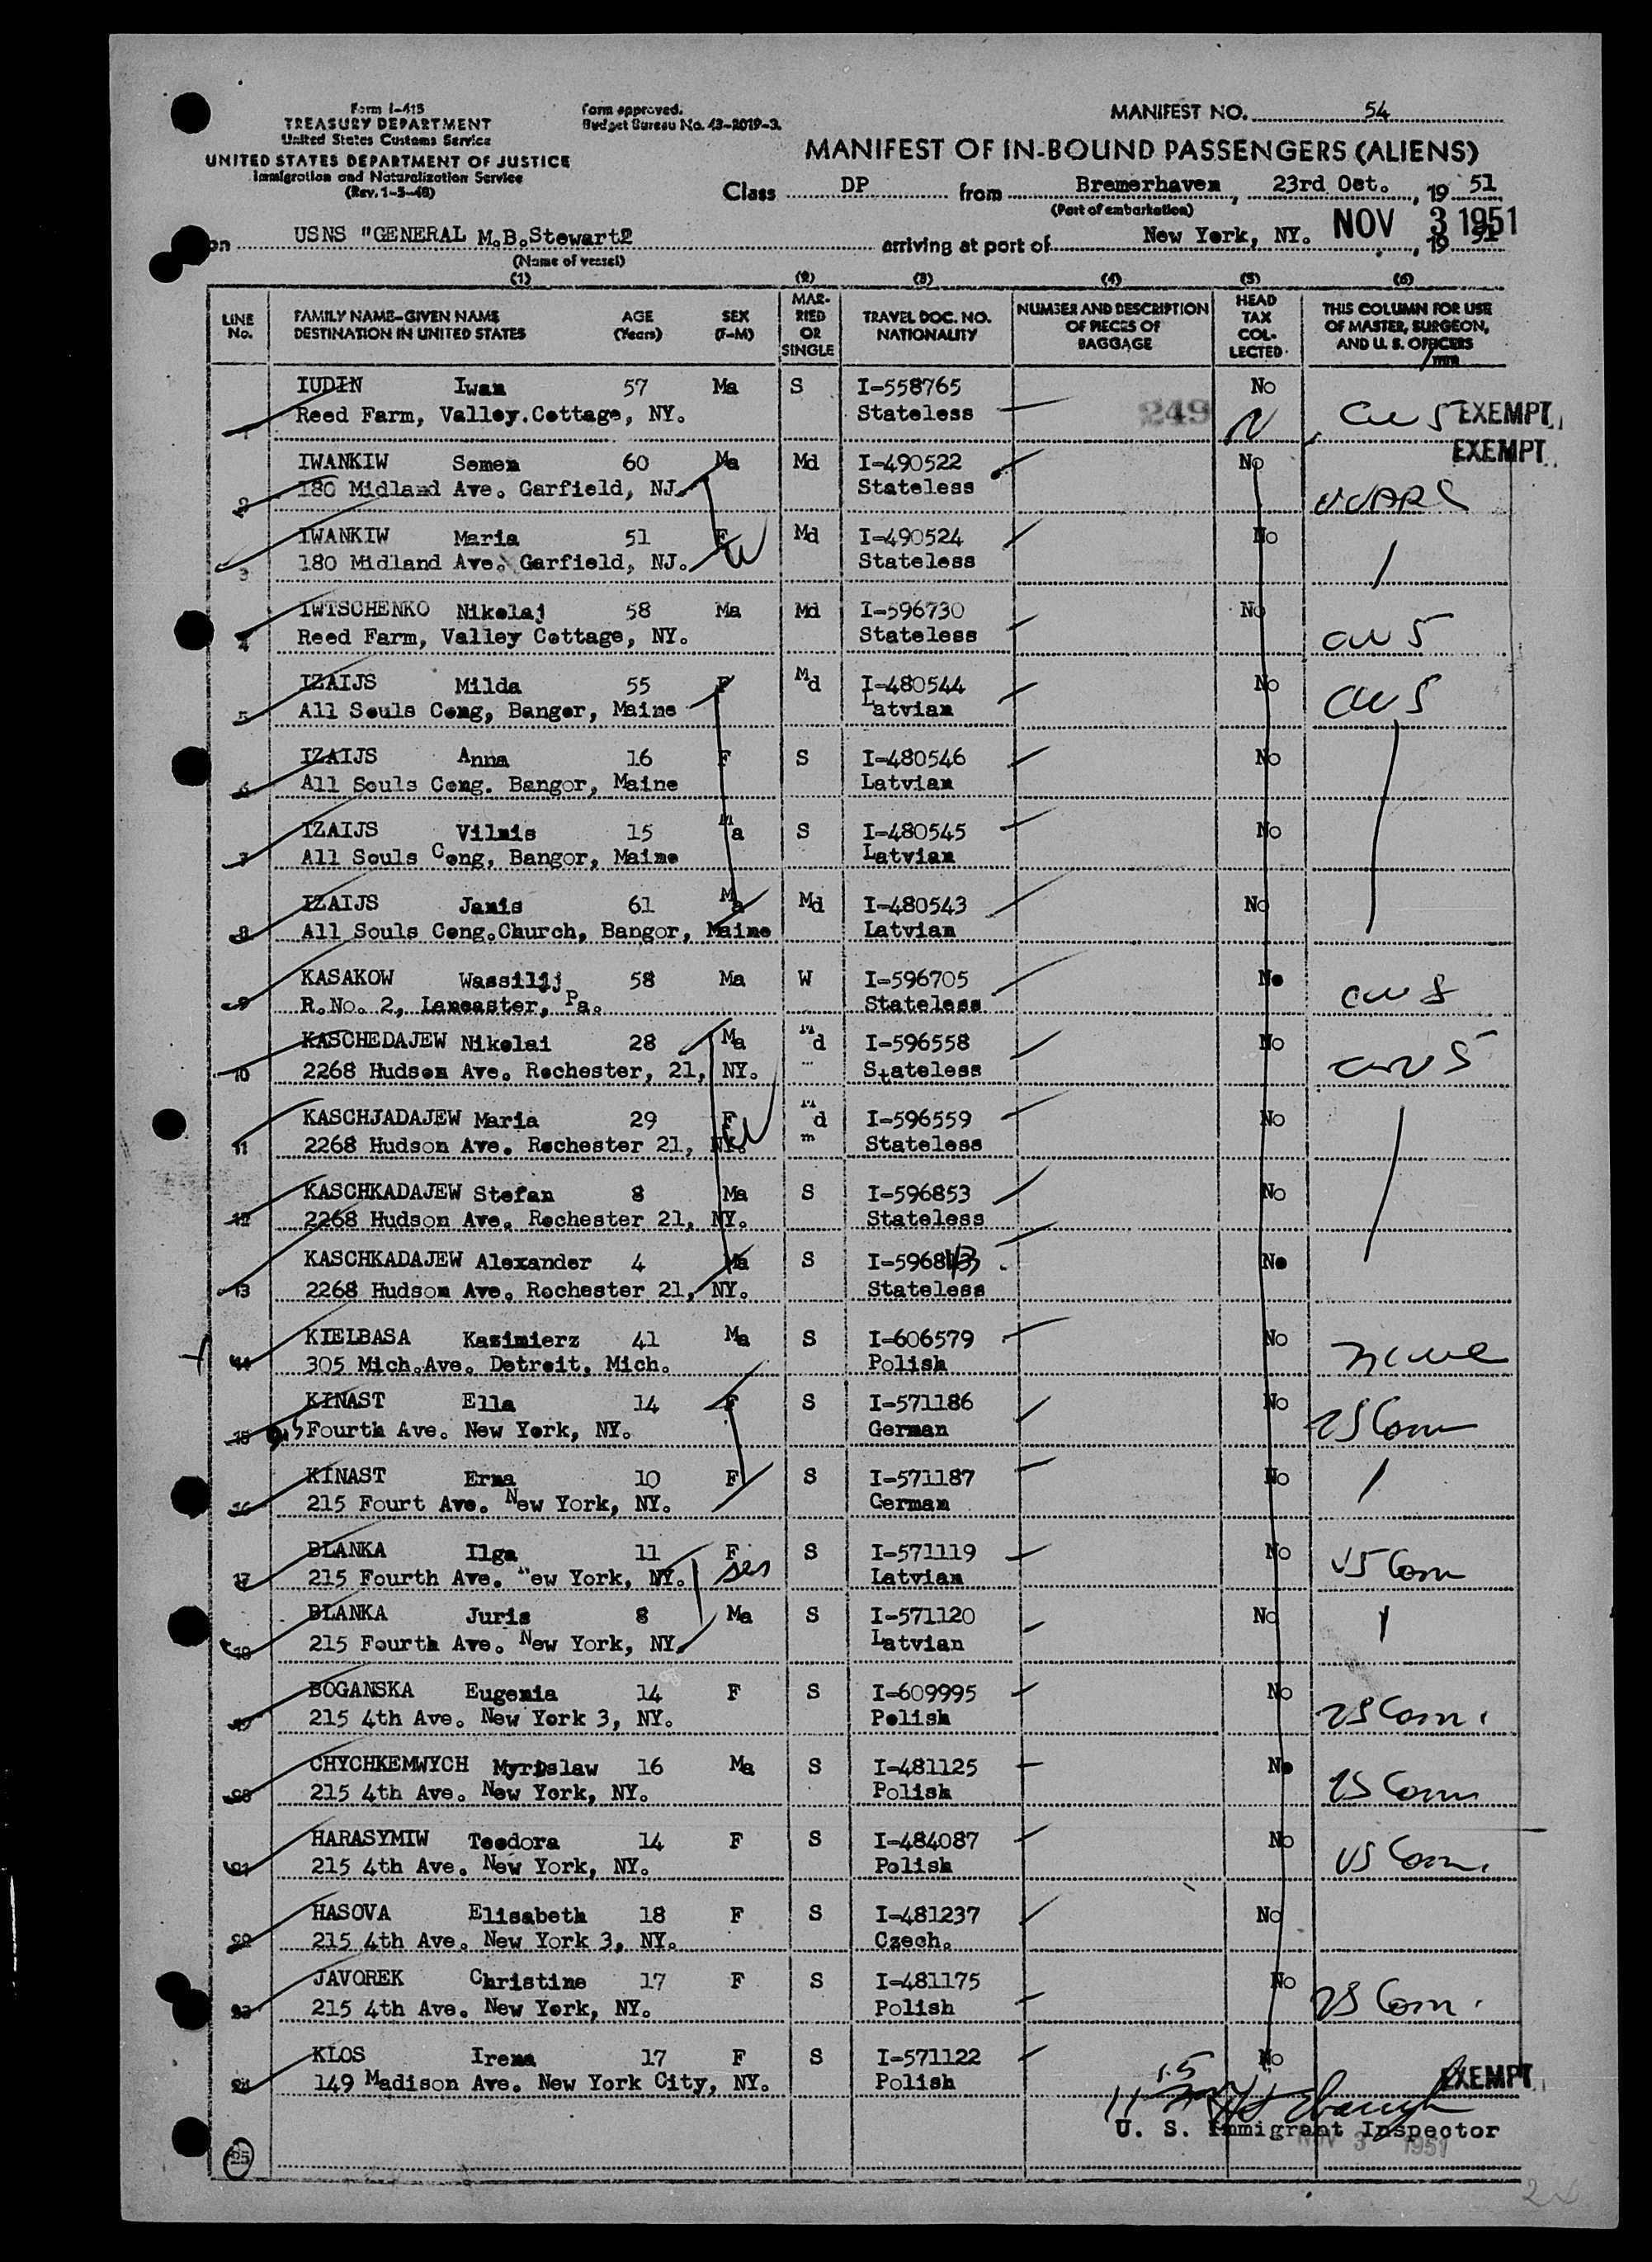 Form I-415
TREASURY DEPARTMENT
United States Customs Service
UNITED STATES DEPARTMENT OF JUSTICE
Immigration and Naturalization Service
(Rev. 1-3-48)
Form approved.
Budget Bureau No. 43-2019-3.
MANIFEST NO. 54
MANIFEST OF IN-BOUND PASSENGERS (ALIENS)
Class DP from Bremerhaven, 23rd Oct., 19 51
(Port of embarkation)
on USNS "GENERAL M.B.Stewart2 arriving at port of New York, NY. NOV 3 1951, 19 51
(Name of vessel)
(1) (2) (3) (4) (5) (6)
LINE No. FAMILY NAME-GIVEN NAME DESTINATION IN UNITED STATES AGE (Years) SEX (F-M) MAR-RIED OR SINGLE TRAVEL DOC. NO. NATIONALITY NUMBER AND DESCRIPTION OF PIECES OF BAGGAGE HEAD TAX COL-LECTED THIS COLUMN FOR USE OF MASTER, SURGEON, AND U. S. OFFICERS
IUDIN Iwan 57 Ma S I-558765 No
1 Reed Farm, Valley.Cottage, NY. Stateless 249 N CWS EXEMPT
IWANKIW Semen 60 Ma Md I-490522 No EXEMPT
2 180 Midland Ave. Garfield, NJ. Stateless
IWANKIW Maria 51 F Md I-490524 No
3 180 Midland Ave. Garfield, NJ. W Stateless
IWTSCHENKO Nikolaj 58 Ma Md I-596730 No
4 Reed Farm, Valley Cottage, NY. Stateless CWS
IZAIJS Milda 55 F Md I-480544 No
5 All Souls Cong, Bangor, Maine Latvian CWS
IZAIJS Anna 16 F S I-480546 No
6 All Souls Cong. Bangor, Maine Latvian
IZAIJS Vilnis 15 Ma S I-480545 No
7 All Souls Cong, Bangor, Maine Latvian
IZAIJS Janis 61 Ma Md I-480543 No
8 All Souls Cong.Church, Bangor, Maine Latvian
KASAKOW Wassilij 58 Ma W I-596705 No
9 R.No. 2, Lancaster, Pa. Stateless CWS
KASCHEDAJEW Nikolai 28 Ma Md I-596558 No
10 2268 Hudson Ave. Rochester, 21, NY. Stateless CWS
KASCHJADAJEW Maria 29 F Md I-596559 No
11 2268 Hudson Ave. Rochester 21, NY. W Stateless
KASCHKADAJEW Stefan 8 Ma S I-596853 No
12 2268 Hudson Ave. Rochester 21, NY. Stateless
KASCHKADAJEW Alexander 4 Ma S I-596843 No
13 2268 Hudson Ave. Rochester 21, NY. Stateless
KIELBASA Kazimierz 41 Ma S I-606579 No
14 305 Mich.Ave. Detroit, Mich. Polish
KINAST Ella 14 F S I-571186 No
15 Fourth Ave. New York, NY. German US Com
KINAST Erna 10 F S I-571187 No
16 215 Fourt Ave. New York, NY. German
BLANKA Ilga 11 F S I-571119 No
17 215 Fourth Ave. New York, NY. Latvian US Com
BLANKA Juris 8 Ma S I-571120 No
18 215 Fourth Ave. New York, NY. Latvian
BOGANSKA Eugenia 14 F S I-609995 No
19 215 4th Ave. New York 3, NY. Polish US Com.
CHYCHKEMWYCH Myroslaw 16 Ma S I-481125 No
20 215 4th Ave. New York, NY. Polish US Com
HARASYMIW Teodora 14 F S I-484087 No
21 215 4th Ave. New York, NY. Polish US Com.
HASOVA Elisabeth 18 F S I-481237 No
22 215 4th Ave. New York 3, NY. Czech.
JAVOREK Christine 17 F S I-481175 No
23 215 4th Ave. New York, NY. Polish US Com.
KLOS Irena 17 F S I-571122 No
24 149 Madison Ave. New York City, NY. Polish EXEMPT
U. S. Immigrant Inspector
NOV 3 1951
25